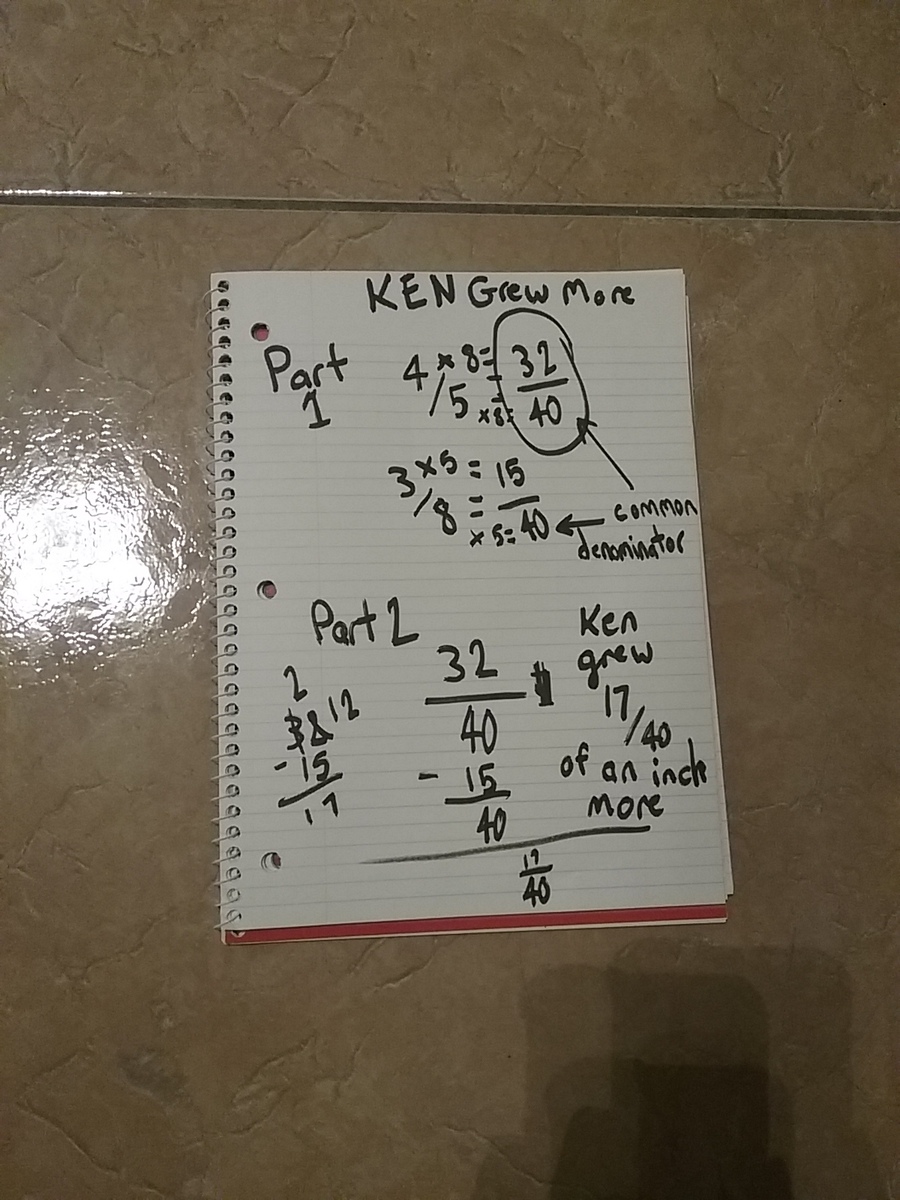 KEN Grew More
Part
1
4 × 8 = 32
/5 × 8 = 40
3 × 5 = 15
/8 = 
× 5 = 40
common
denominator
Part 2
2
32 12
- 15
17
32
40
- 15
40
17
40
Ken
grew
17
/40
of an inch
more